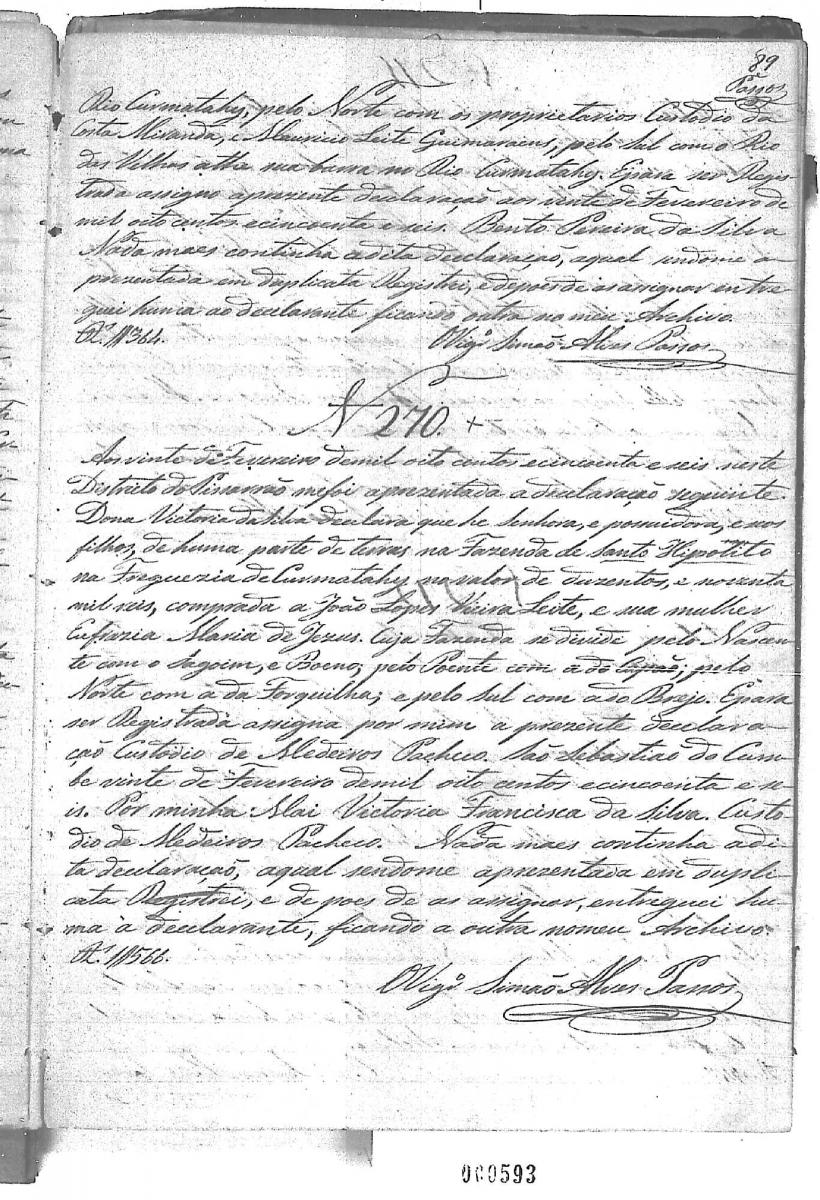 89
Passos
Rio Curmatahy, pelo Norte com os proprietarios Custodio da
Costa Miranda, e Mauricio Leite Guimaraens, pelo Sul com o Rio
das Velhas athe sua barra no Rio Curmatahy. Epara ser Regis-
trada assigno aprezente declaração aos vente de Fevereiro de
mil oito centos ecincoenta e seis. Bento Pereira da Silva
Nada maes continha adita declaração, aqual sendome a-
prezentada em duplicata Registrei, e depois de as assignar entre
guei huma ao declarante ficando outra no meu Archivo.
R.s 1$364. O Vig.o Simão Alves Passos
N 270. +
Aos vinte de Fevereiro demil oito centos ecincoenta e seis neste
Districto do Pissarrão mefoi aprezentada a declaração seguinte.
Dona Victoria da Silva declara que he Senhora, e possuidora, e seos
filhos, de huma parte de terras na Fazenda de Santo Hipolito
na Freguezia de Curmatahy no valor de duzentos, e noventa
mil reis, comprada a João Lopes Vieira Leite, e sua mulher
Eufrazia Maria de Jezus. Cuja Fazenda se devide pelo Nascen-
te com o Lagoim, e Boeno; pelo Poente com a do; pelo
Norte com à da Forquilha; e pelo Sul com ado Brejo. Epara
ser Registrada assigna por mim a prezente declara-
ção Custodio de Medeiros Pacheco. São Sebastião do Cum-
be vinte de Fevereiro demil oito centos ecincoenta e se-
is. Por minha Mai Victoria Francisca da Silva. Custo-
dio de Medeiros Pacheco. Nada maes continha adi-
ta declaração, aqual sendome aprezentada em dupli-
cata Registrei, e de poes de as assignar, entreguei hu-
ma à declarante, ficando a outra nomeu Archivo
R.s 1$566.
O Vig.o Simão Alves Passos
000593